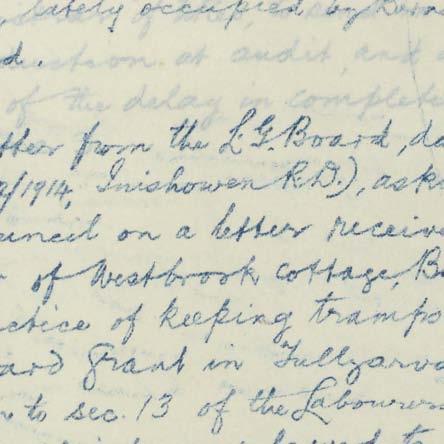 lately occupied by
d.
question at audit, and
of the delay in complet
tter from the L. G. Board, da
/1914, Inishowen R.D.), ask
uncil on a letter receive
of Westbrook Cottage, B
actice of keeping tramps
ard Grant in Tullyarva
to sec. 13 of the Labourer